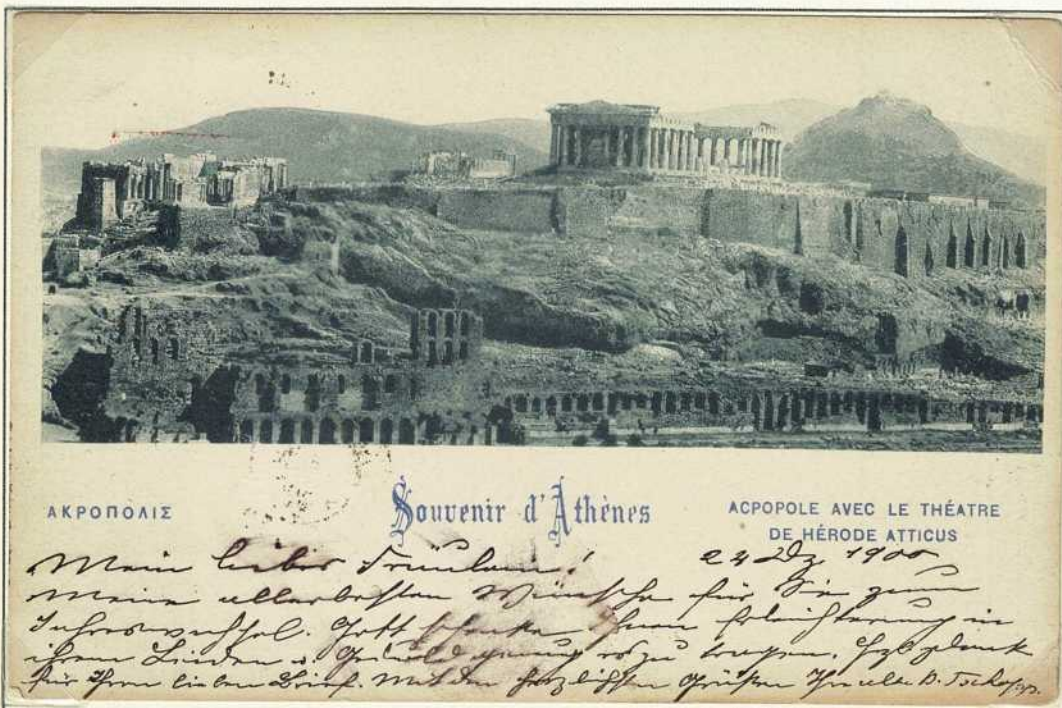 ΑΚΡΟΠΟΛΙΣ
Souvenir d'Athènes
ACPOPOLE AVEC LE THÉATRE
DE HÉRODE ATTICUS
Mein liebes Fräulein! 24 Dz 1900
Meine allerbesten Wünsche für Sie zum
Jahreswechsel. Gott schenke Ihnen Erleichterung in
ihrem Leiden u. Geduld genug es zu tragen.
für Ihren lieben Brief. Mit den herzlichsten Grüßen Ihre alte B.